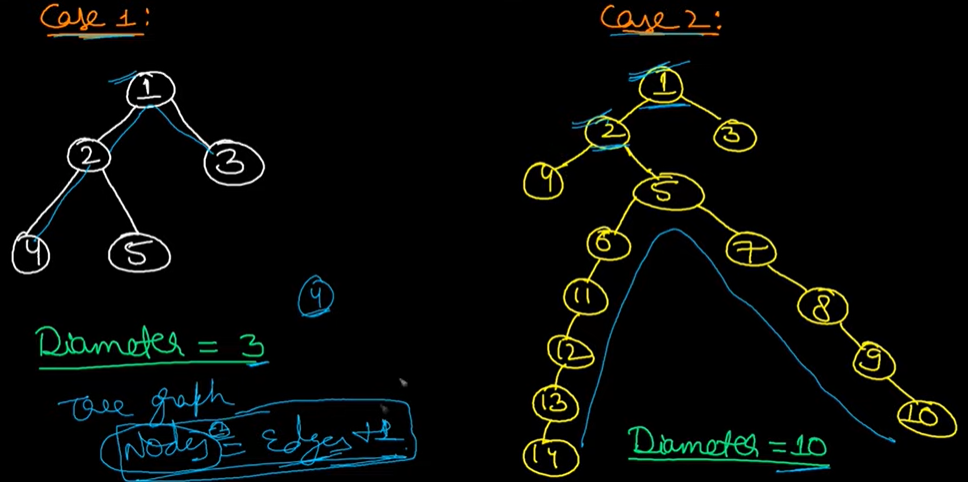 Case 1:
1
2
3
4
5
4
Diameter = 3
Tree graph
Nodes = Edges + 1
Case 2:
1
2
3
4
5
6
7
11
8
12
9
13
10
14
Diameter = 10